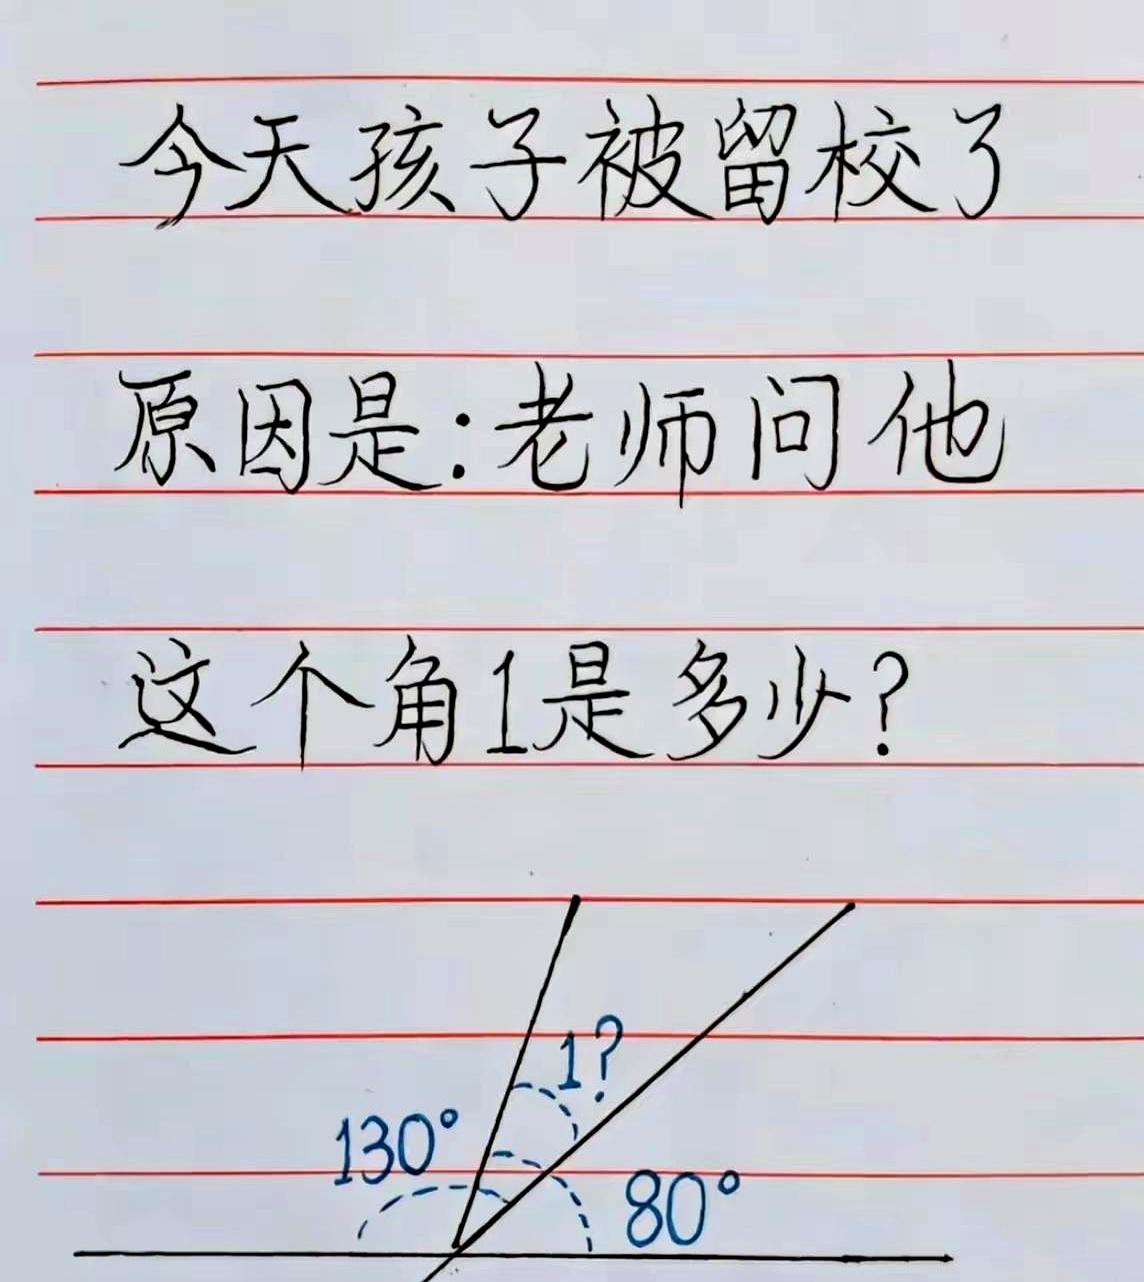 今天孩子被留校了
原因是:老师问他
这个角1是多少?
1?
130°
80°